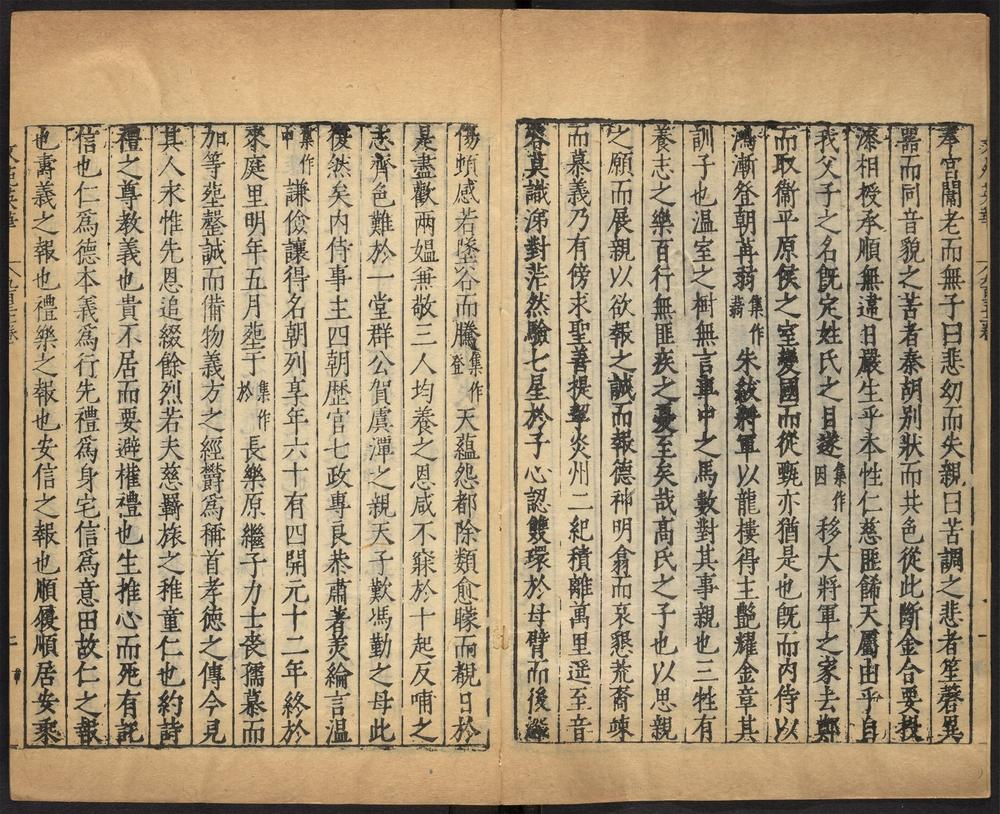 奉宮闈老而無子曰悲幼而失親曰苦調之悲者笙磬異
器而同音貌之苦者秦胡別狀而共色從此斷金合要投
漆相授承順無違日嚴生乎本性仁慈匪餙天屬由乎自
我父子之名旣定姓氏之目遂集作因移大將軍之家去鄭
而取衞平原侯之室變國而從甄亦猶是也旣而内侍以
鴻漸登朝苒蒻集作蒻朱紱將軍以龍樓得主艷耀金章其
訓子也溫室之樹無言車中之馬數對其事親也三牲有
養志之樂百行無匪疾之憂至矣哉髙氏之子也以思親
之願而展親以欲報之誠而報德神明翕而哀懇荒裔竦
而慕義乃有傍求聖善提挈炎州二紀積離萬里遥至音
容莫識涕對茫然驗七星於子心認雙環於母臂而後邈
傷頓感若墜谷而騰集作登天蘊怨都除類愈矇而覩日於
是盡歡兩媪無敬三人均養之恩咸不寐於十起反哺之
志齊色難於一堂群公賀虞潭之親天子歎馮勤之母此
復然矣内侍事主四朝歴官七政專良恭肅著美綸言溫
集作中謙儉讓得名朝列享年六十有四開元十二年終於
來庭里明年五月葬于集作於長樂原繼子力士喪孺慕而
加等葬罄誠而備物義方之經欝爲稱首孝德之傳今見
其人永惟先恩追綴餘烈若夫慈羈旅之稚童仁也約詩
禮之尊教義也貴不居而要避權禮也生推心而死有託
信也仁爲德本義爲行先禮爲身宅信爲意田故仁之報
也壽義之報也禮樂之報也安信之報也順履順居安乘